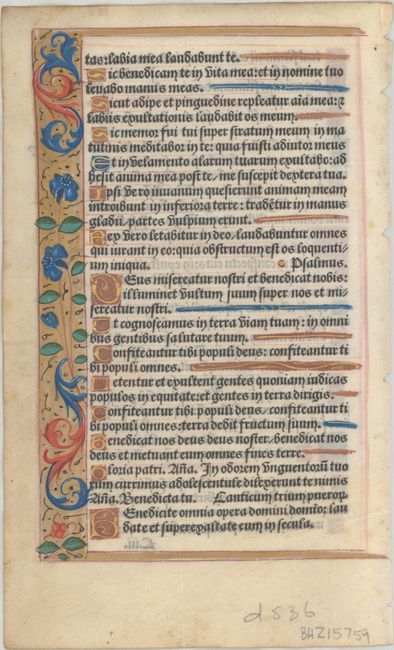 tas: labia mea laudabunt te.
Sic benedicam te in vita mea: et in nomine tuo
leuabo manus meas.
Sicut adipe et pinguedine repleatur aīa mea: ⁊
labiis exultationis laudabit os meum.
Sic memor fui tui super stratum meum in ma
tutinis meditabor in te: quia fuisti adiutor meus
Et in velamento alarum tuarum exultabo: ad
hesit anima mea post te/ me suscepit dextera tua.
Ipsi vero in uanum quesierunt animam meam
introibunt in inferiora terre: tradētur in manus
gladii/ partes vulpium erunt.
Rex vero letabitur in deo/ laudabuntur omnes
qui iurant in eo: quia obstructum est os loquenti-
um iniqua. Psalmus.
Deus misereatur nostri et benedicat nobis:
illuminet vultum suum super nos et mi-
sereatur nostri.
Ut cognoscamus in terra viam tuam: in omni
bus gentibus salutare tuum.
Confiteantur tibi populi deus: confiteantur ti
bi populi omnes.
Letentur et exultent gentes quoniam iudicas
populos in equitate: et gentes in terra dirigis.
Confiteantur tibi populi deus/ confiteantur ti
bi populi omnes: terra dedit fructum suum.
Benedicat nos deus deus noster/ benedicat nos
deus et metuant eum omnes fines terre.
Gloria patri. Aña. In odorem vnguentorū tuo
rum currimus adolescentule dilexerunt te nimis
Aña. Benedicta tu. Canticum trium pueroꝝ.
Benedicite omnia opera domini domino: lau
date et superexaltate eum in secula.
d 536
BHZ15759